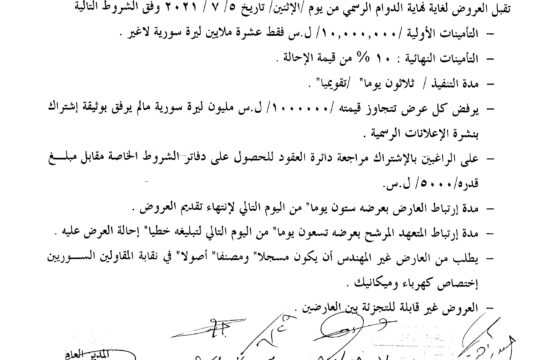 تقبل العروض لغاية نهاية الدوام الرسمي من يوم /الإثنين/ تاريخ ٥/ ٧ / ٢٠٢١ وفق الشروط التالية
– التأمينات الأولية /١٠,٠٠٠,٠٠٠/ ل.س فقط عشرة ملايين ليرة سورية لاغير .
– التأمينات النهائية : ١٠ % من قيمة الإحالة .
– مدة التنفيذ / ثلاثون يوما" /تقويميا" .
– يرفض كل عرض تتجاوز قيمته /١٠٠٠٠٠٠/ ل.س مليون ليرة سورية مالم يرفق بوثيقة إشتراك
بنشرة الإعلانات الرسمية .
– على الراغبين بالإشتراك مراجعة دائرة العقود للحصول على دفاتر الشروط الخاصة مقابل مبلـغ
قدره/٥٠٠٠/ ل.س.
– مدة إرتباط العارض بعرضه ستون يوما" من اليوم التالي لإنتهاء تقديم العروض .
– مدة إرتباط المتعهد المرشح بعرضه تسعون يوما" من اليوم التالي لتبليغه خطيا" إحالة العرض عليه .
– يطلب من العارض غير المهندس أن يكون مسجلا" ومصنفا" أصولا" في نقابة المقاولين السـوريين
إختصاص كهرباء وميكانيك .
– العروض غير قابلة للتجزئة بين العارضين .
المدير العام